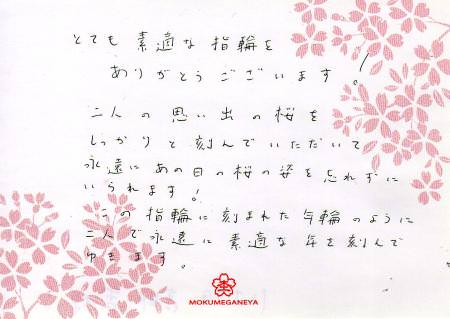 とても素適な指輪を
ありがとうございます!
二人の思い出の桜を
しっかりと刻んでいただいて
永遠にあの日の桜の姿を忘れずに
いられます!
この指輪に刻まれた年輪のように
二人で永遠に素適な年を刻んで
ゆきます。
MOKUMEGANEYA